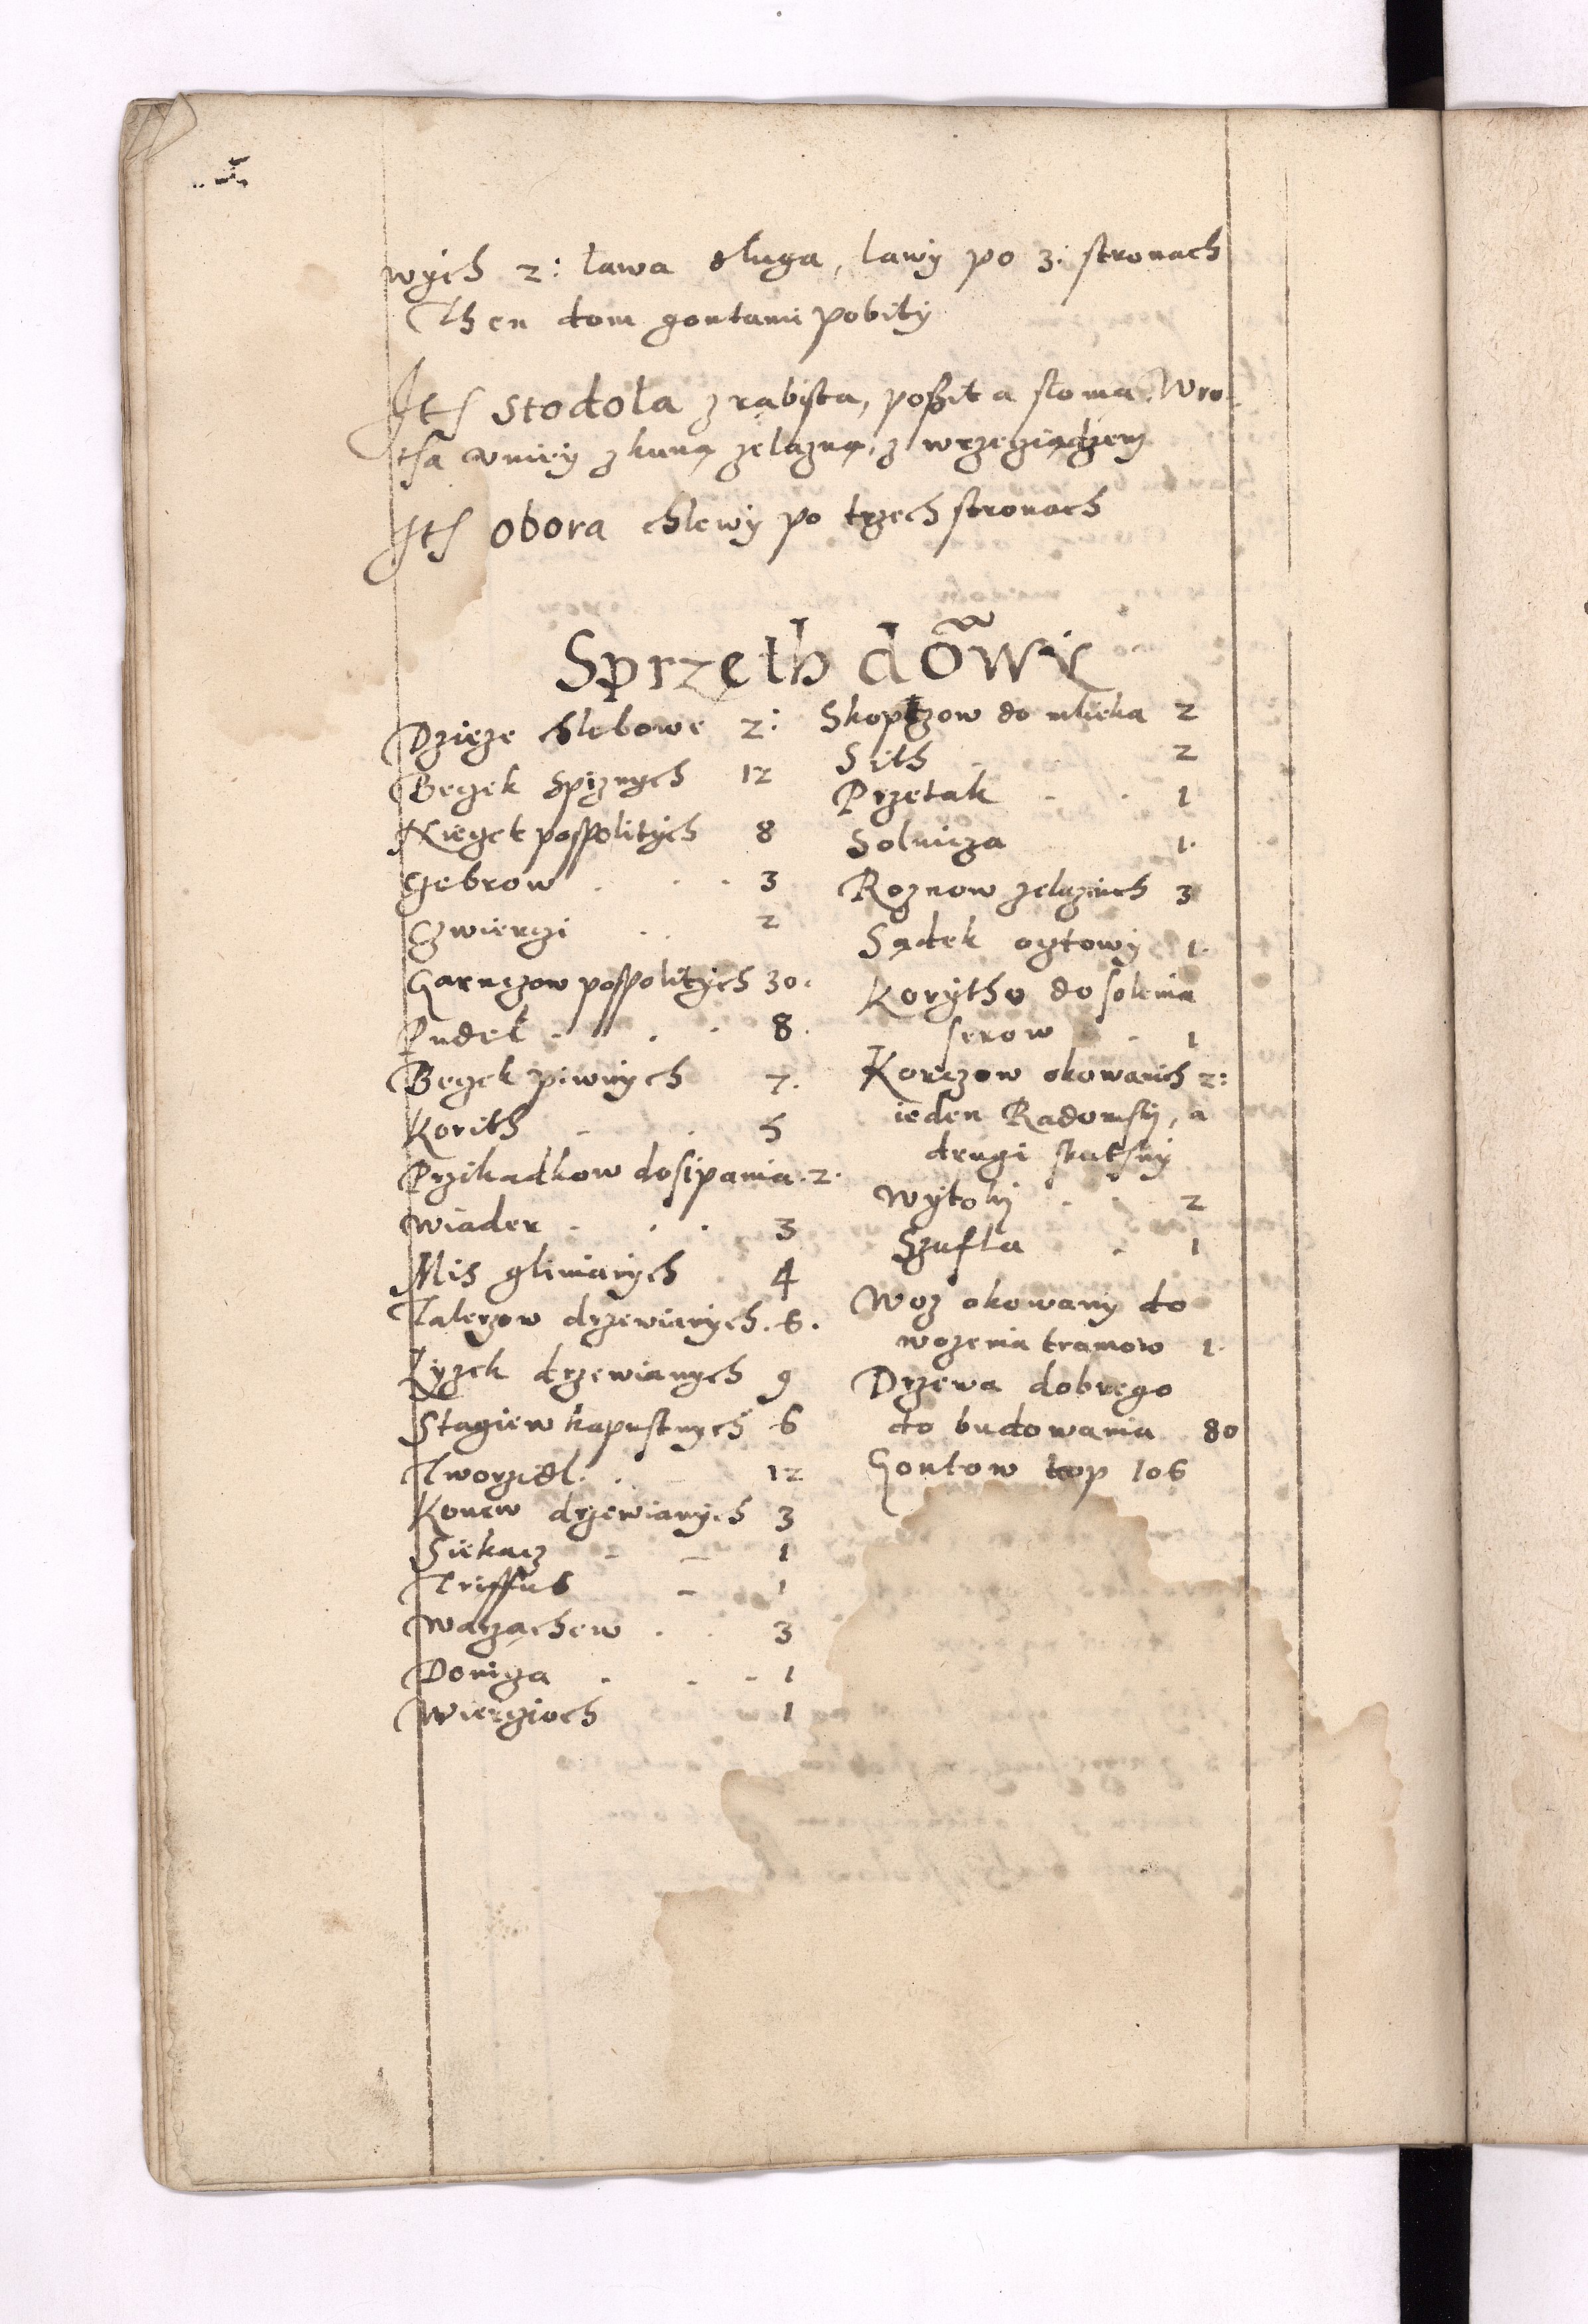 wych 2: ława długa, lawy po 3: stronach
Then dom gontami pobity
Itē stodola z rąbista, poßita słomą. Wro
tha w niey z kuną zelazną, z wrzeciądzem
Itē obora chlewy po trzech stronach
Sprzęth domowy
Dzieze chlebowe 2:
Beczek spiznych 12
Niecek pospolitych 8
Cebrow 3
Czwierczi 2
Garnczow pospolitych 30.
Pudeł 8.
Beczek piwnych 7.
Korith 5
Przikadkow do sipania 2.
Wiader 3
Mis glinianych 4
Talerzow drzewianych 6.
Lyzek drzewianych 9
Stągiew kapustnych 6
Tworzidl 12
Konew drzewianych 3
Siekacz 1
Triffus 1
Warząchew 3
Donicza 1
Wierczioch 1
Skopczow do mlieka 2
Sith 2
Przetak 1
Solnicza 1.
Roznow zelaznich 3
Sądek octowy 1.
Korytho do solenia
serow 1
Korczow okowanich 2:
ieden Radomsky, a
drugi
Wytoky 2
Szufla 1
Woz okowany do
wozenia tramow 1.
Drzewa dobrego
do budowania 80
Gontow kop 106